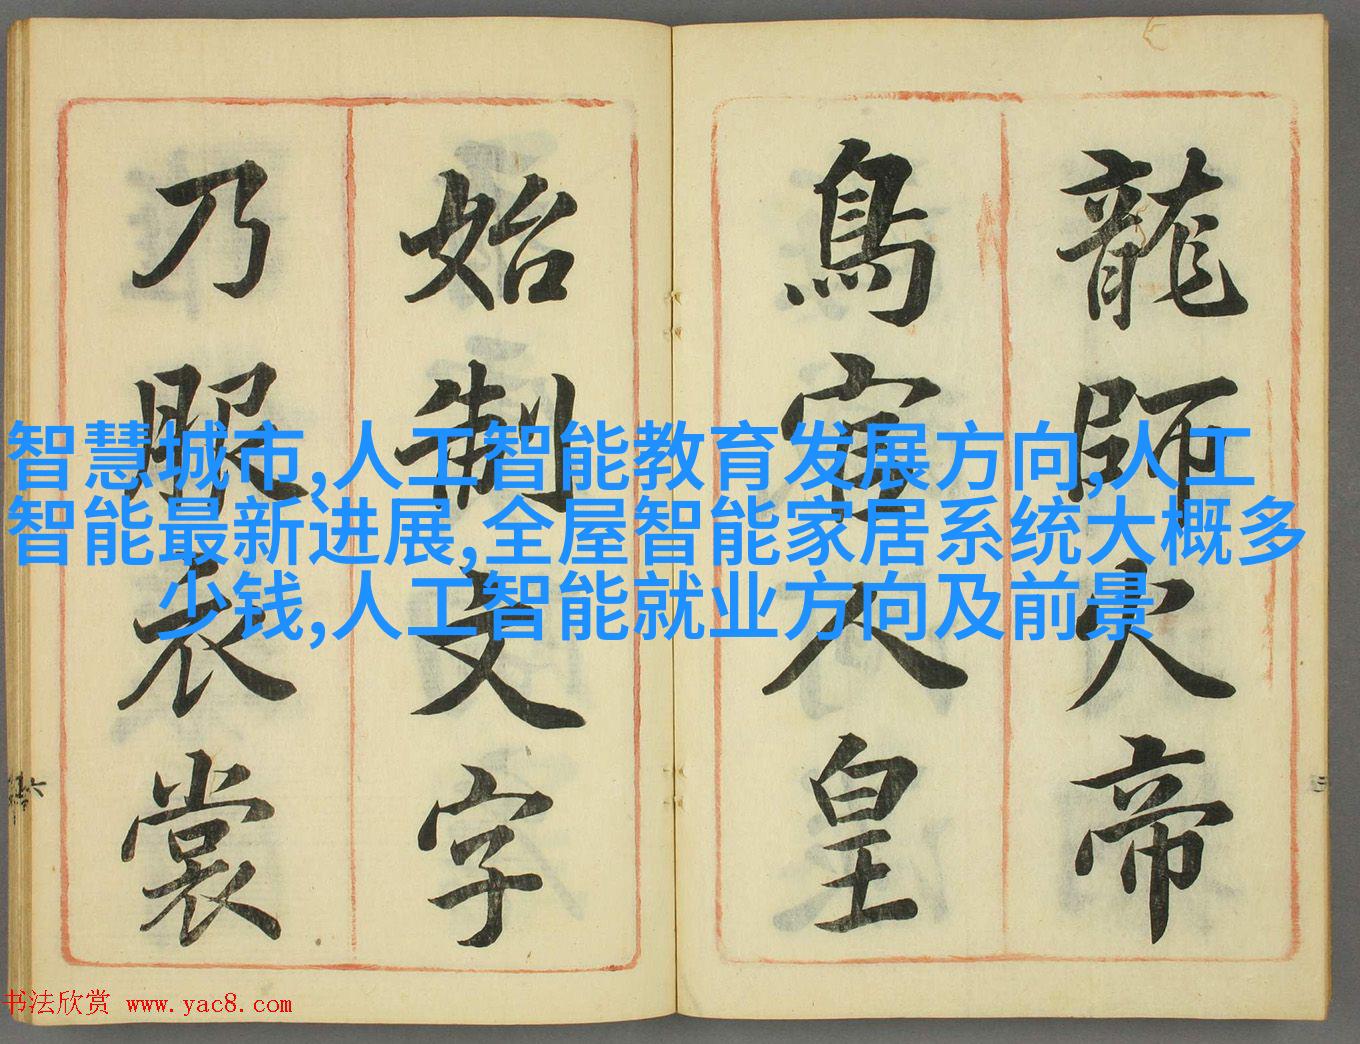 龍師火帝
鳥官人皇
始制文字
乃服衣裳
智慧城市,人工智能教育发展方向,人工
智能最新进展,全屋智能家居系统大概多
少钱,人工智能就业方向及前景
书法欣赏 www.yac8.com